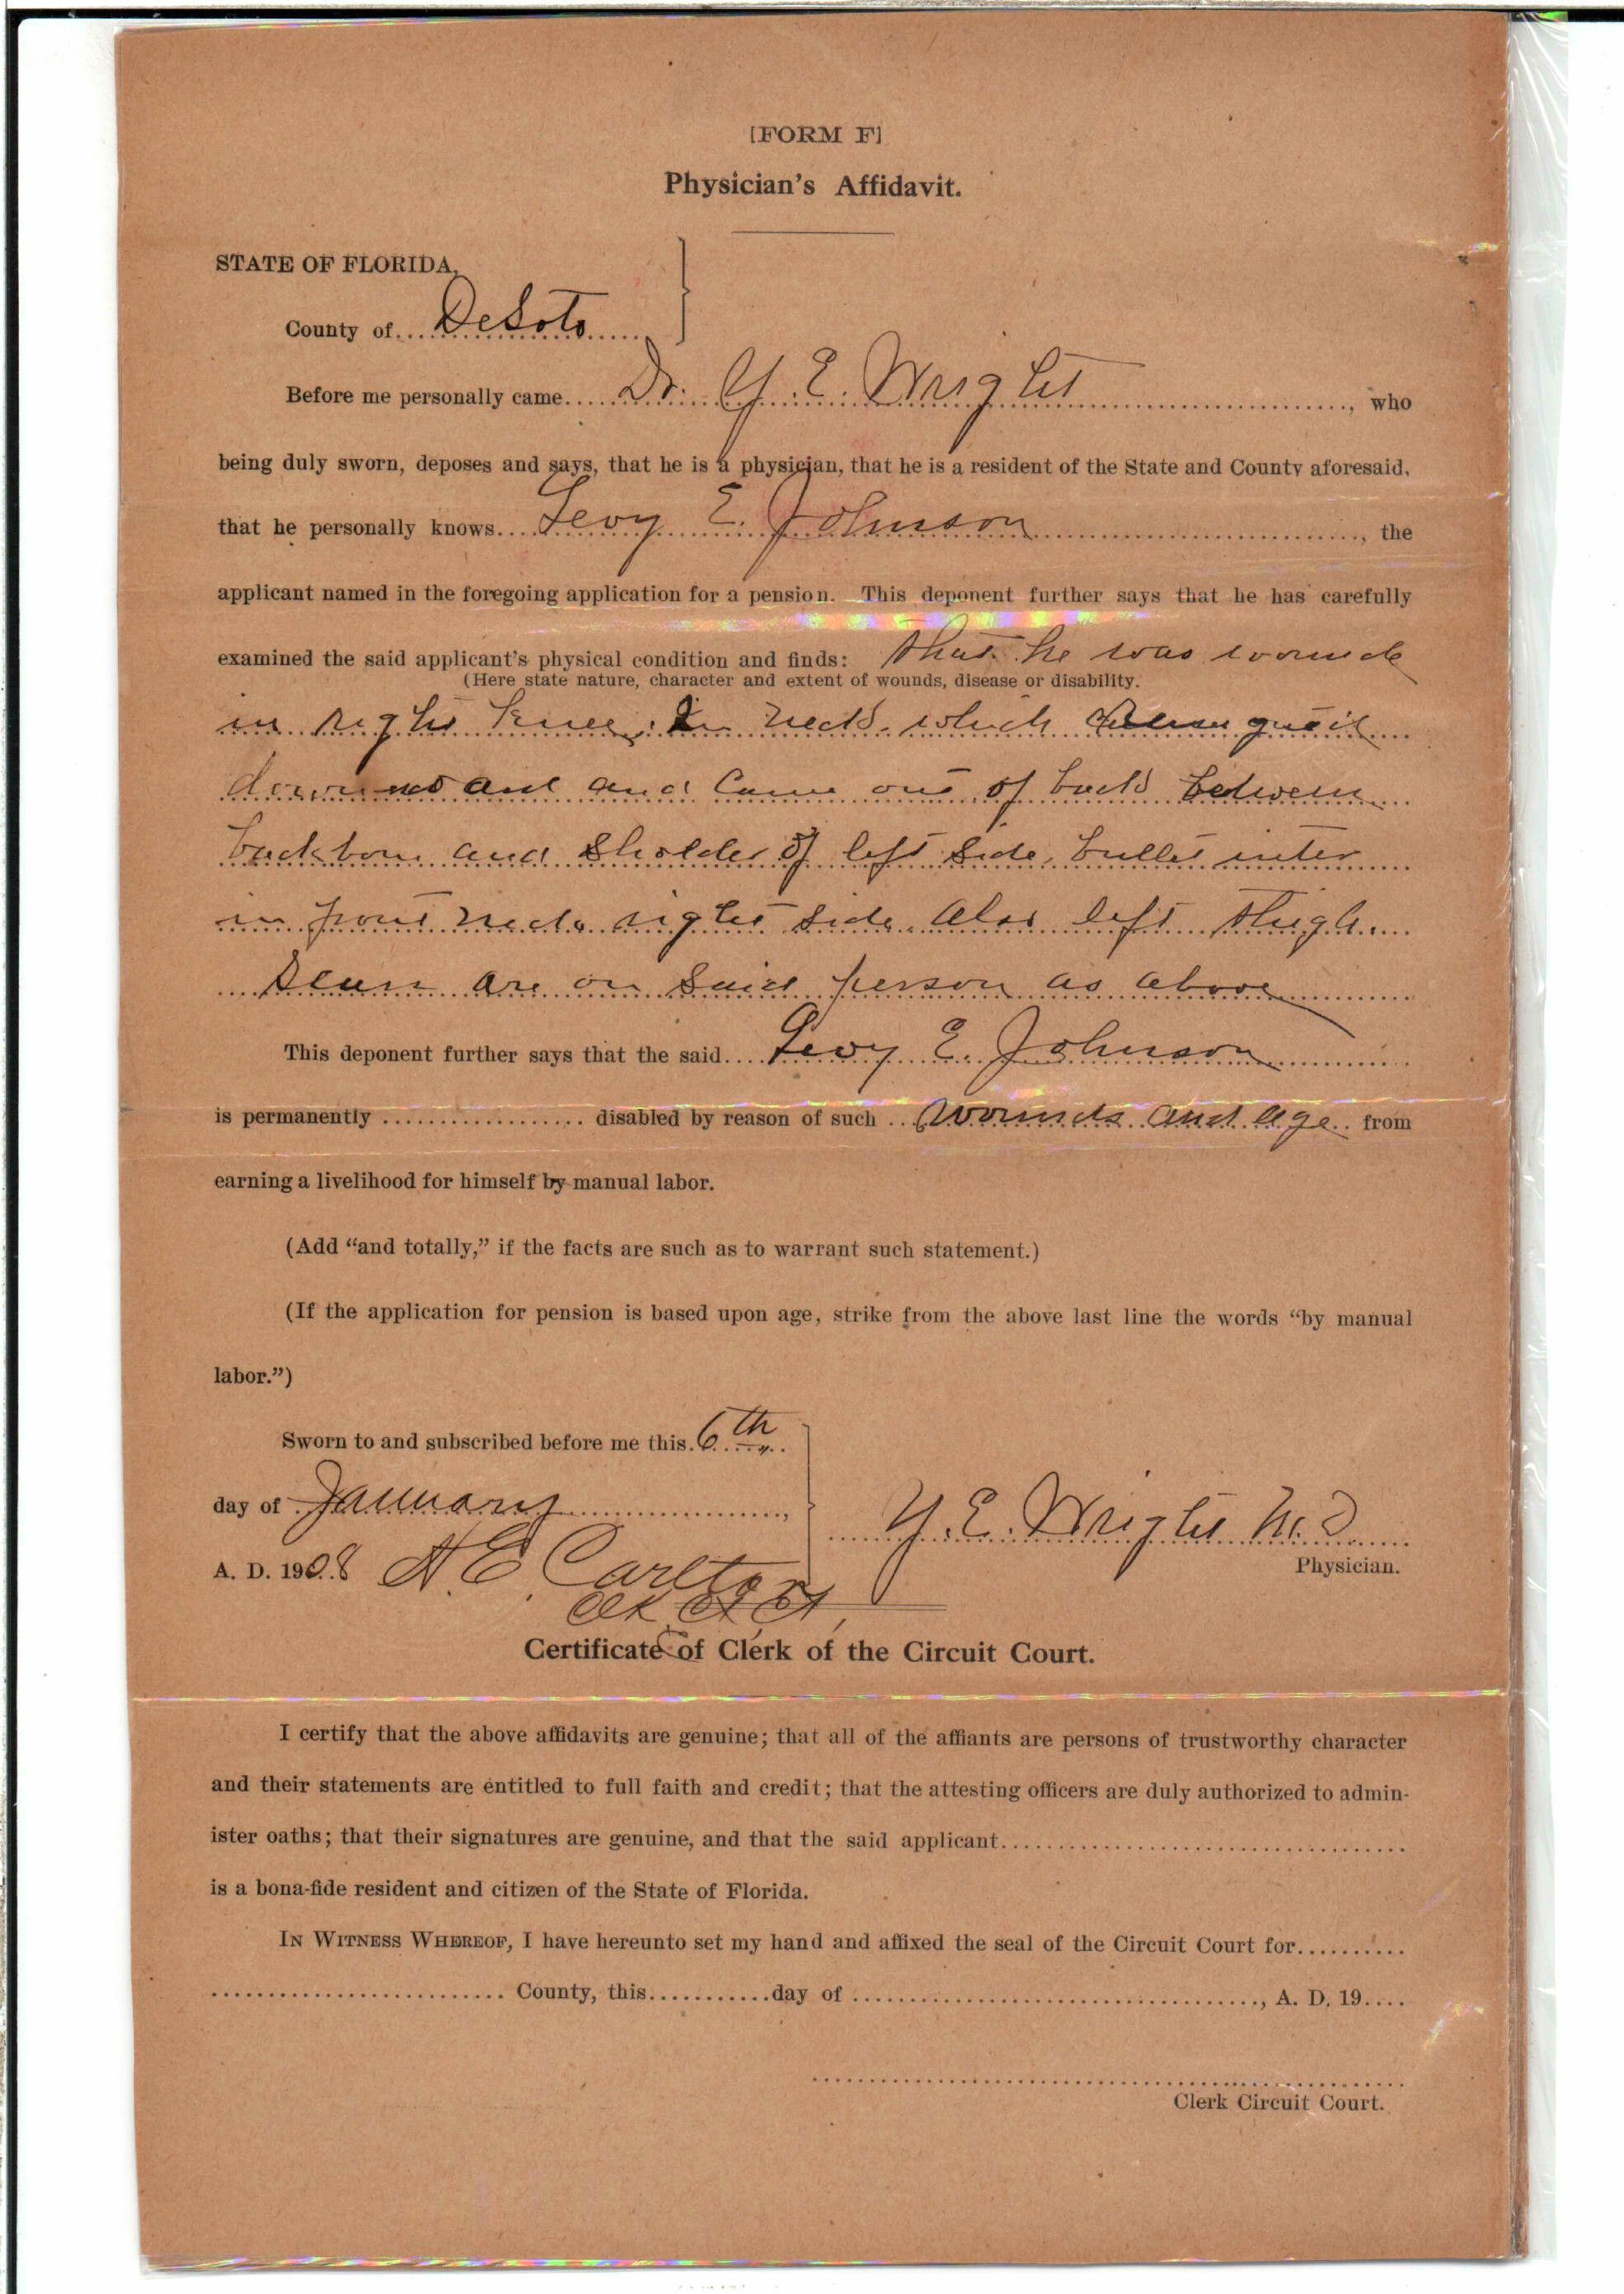 [FORM F]
Physician's Affidavit.
STATE OF FLORIDA,
County of DeSoto
Before me personally came Dr. Y. E. Wright, who
being duly sworn, deposes and says, that he is a physician, that he is a resident of the State and County aforesaid,
that he personally knows Levy E. Johnson, the
applicant named in the foregoing application for a pension. This deponent further says that he has carefully
examined the said applicant's physical condition and finds: that he was wounde
(Here state nature, character and extent of wounds, disease or disability.
in right knee, In neck which
and came out of back between
backbone and sholder of left side, bullet inter
in front neck right side also left thigh
Scars are on said person as above
This deponent further says that the said Levy E. Johnson
is permanently ................. disabled by reason of such wounds and age from
earning a livelihood for himself by manual labor.
(Add “and totally,” if the facts are such as to warrant such statement.)
(If the application for pension is based upon age, strike from the above last line the words “by manual
labor.”)
Sworn to and subscribed before me this 6th
day of January,
Y. E. Wright M.D
Physician.
A. D. 1908 A E Carlton
Clk Ct Ct
Certificate of Clerk of the Circuit Court.
I certify that the above affidavits are genuine; that all of the affiants are persons of trustworthy character
and their statements are entitled to full faith and credit; that the attesting officers are duly authorized to admin-
ister oaths; that their signatures are genuine, and that the said applicant
is a bona-fide resident and citizen of the State of Florida.
IN WITNESS WHEREOF, I have hereunto set my hand and affixed the seal of the Circuit Court for
County, this...........day of ..................., A. D. 19....
Clerk Circuit Court.